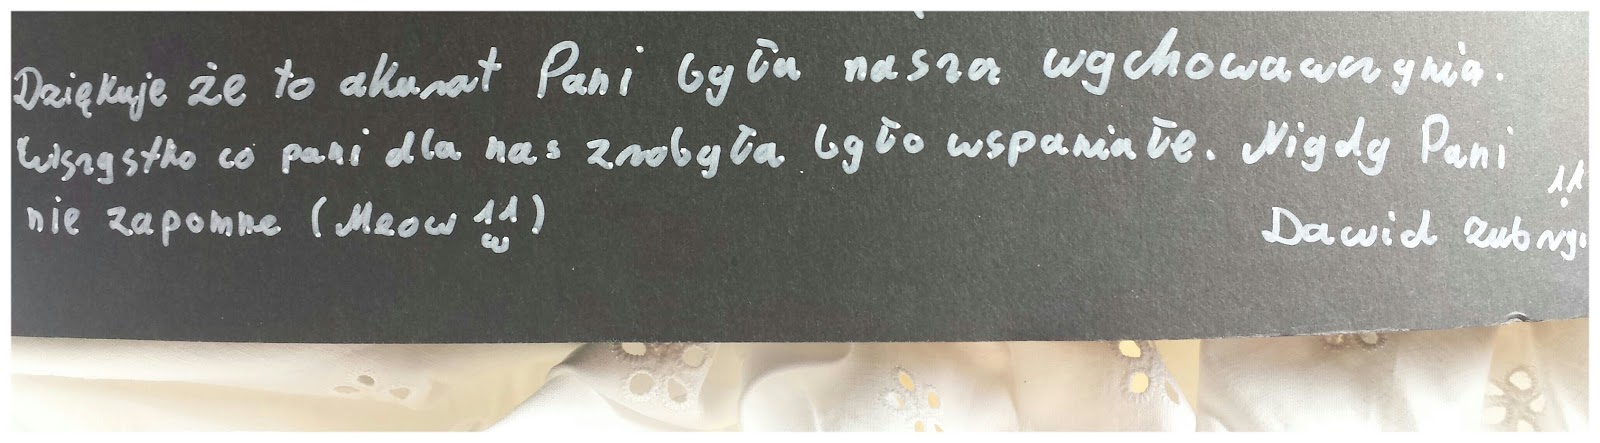 Dziękuje że to akurat Pani była nasza wychowawczynia.
Wszystko co pani dla nas zrobyła było wspaniałe. Nigdy Pani
nie zapomne (Meow)
Dawid